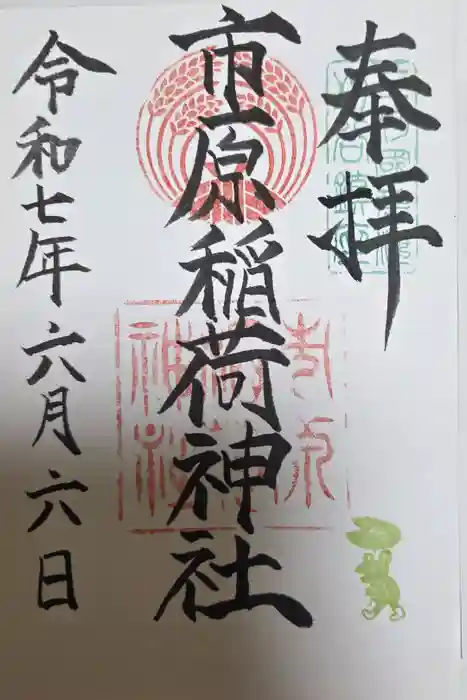 奉拝
市原稲荷神社
令和七年六月六日